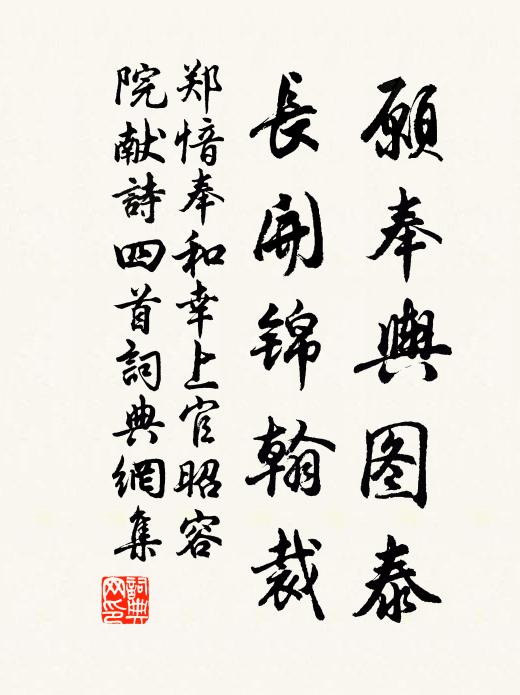 願奉輿图泰
長開錦翰裁
郑愔奉和幸上官昭容
院献詩四首詞典網集
詞典网印